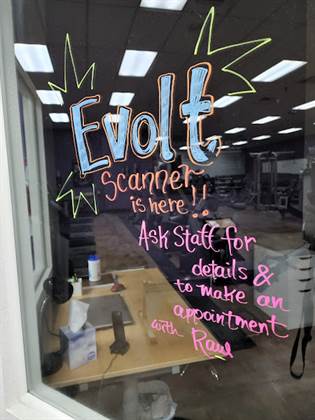 Evolt
Scanner
is here!!
Ask Staff for
details &
to make an
appointment
with Raul